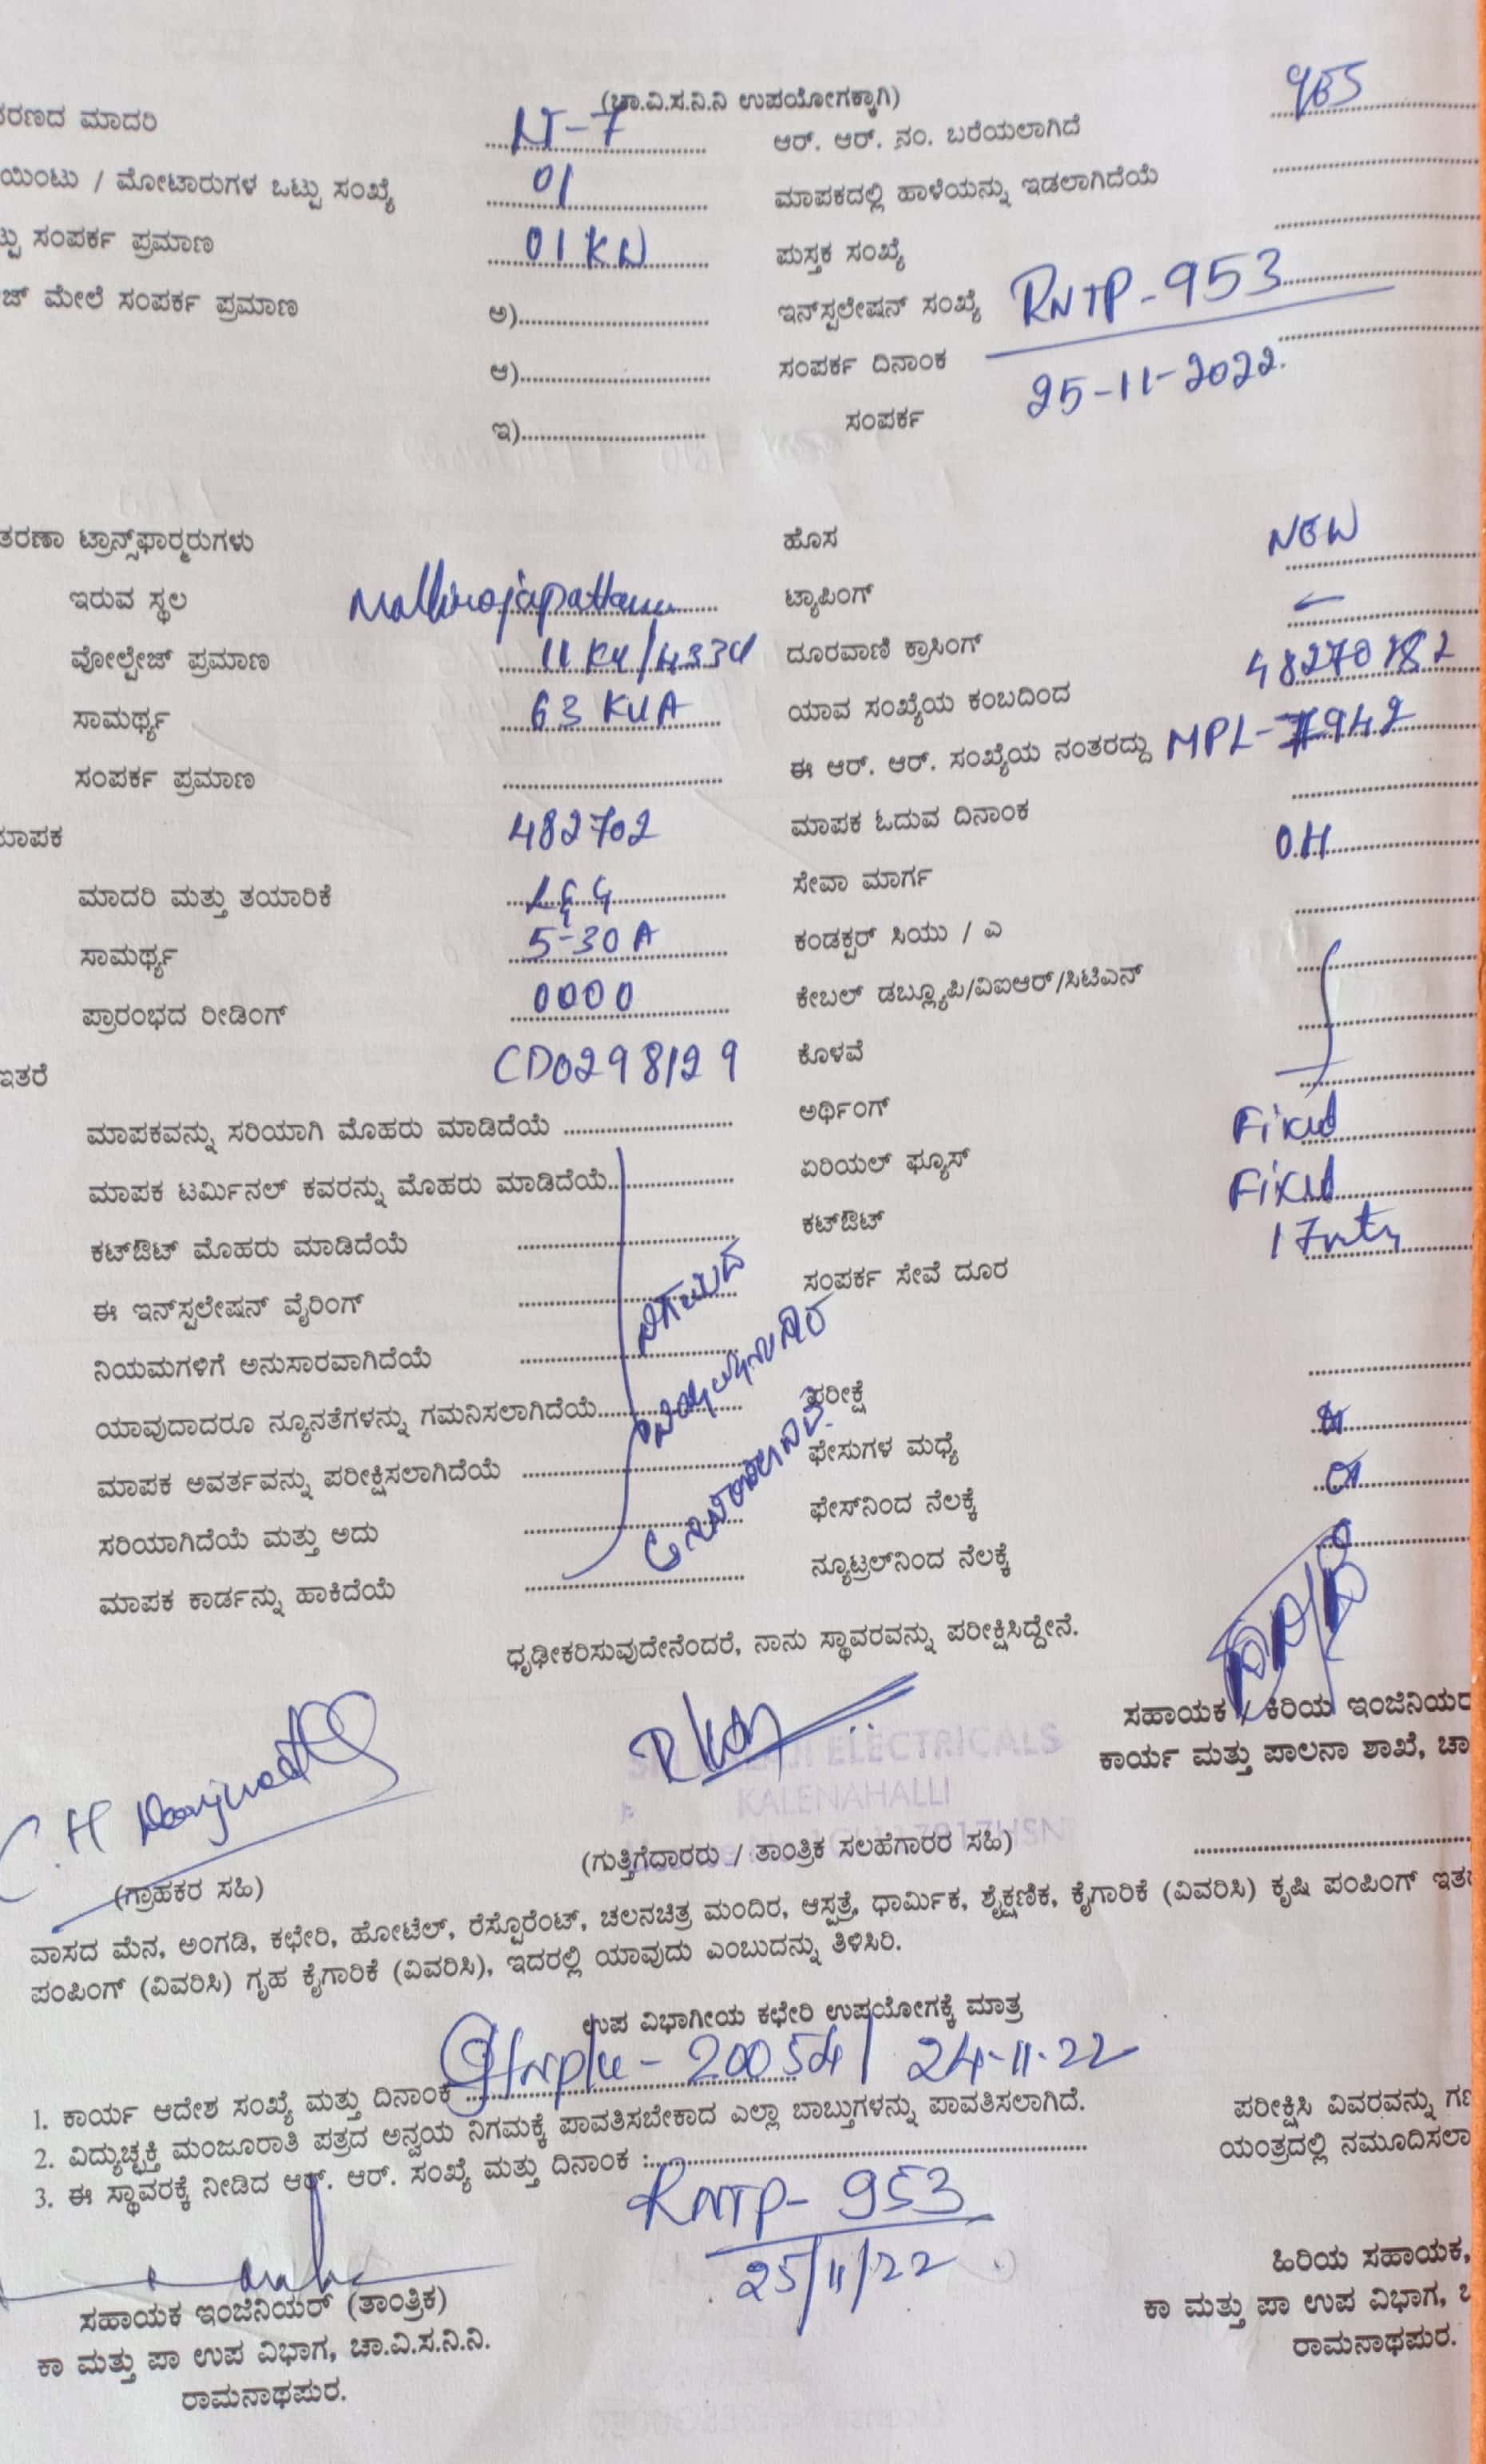 (ಚಾ.ವಿ.ಸ.ನಿ.ನಿ ಉಪಯೋಗಕ್ಕಾಗಿ)
ರಣದ ಮಾದರಿ
ಆರ್. ಆರ್. ನಂ. ಬರೆಯಲಾಗಿದೆ
ಯಿಂಟು / ಮೋಟಾರುಗಳ ಒಟ್ಟು ಸಂಖ್ಯೆ 01
ಮಾಪಕದಲ್ಲಿ ಹಾಳೆಯನ್ನು ಇಡಲಾಗಿದೆಯೆ
ಟ್ಟು ಸಂಪರ್ಕ ಪ್ರಮಾಣ 01 KW
ಪುಸ್ತಕ ಸಂಖ್ಯೆ
ಜ್ ಮೇಲೆ ಸಂಪರ್ಕ ಪ್ರಮಾಣ ಅ)
ಇನ್‌ಸ್ಪಲೇಷನ್ ಸಂಖ್ಯೆ RNTP-953
ಆ)
ಸಂಪರ್ಕ ದಿನಾಂಕ 25-11-2022.
ಇ)
ಸಂಪರ್ಕ
ತರಣಾ ಟ್ರಾನ್ಸ್‌ಫಾರ್‍ಮರುಗಳು
ಹೊಸ NEW
ಇರುವ ಸ್ಥಲ
ಟ್ಯಾಪಿಂಗ್ -
ವೋಲ್ಟೇಜ್ ಪ್ರಮಾಣ
ದೂರವಾಣಿ ಕ್ರಾಸಿಂಗ್
ಸಾಮರ್ಥ್ಯ 63 KVA
ಯಾವ ಸಂಖ್ಯೆಯ ಕಂಬದಿಂದ
ಸಂಪರ್ಕ ಪ್ರಮಾಣ
ಈ ಆರ್. ಆರ್. ಸಂಖ್ಯೆಯ ನಂತರದ್ದು
ಮಾಪಕ 482702
ಮಾಪಕ ಓದುವ ದಿನಾಂಕ
ಮಾದರಿ ಮತ್ತು ತಯಾರಿಕೆ L&G
ಸೇವಾ ಮಾರ್ಗ O.H
ಸಾಮರ್ಥ್ಯ 5-30 A
ಕಂಡಕ್ಟರ್ ಸಿಯು / ಎ
ಪ್ರಾರಂಭದ ರೀಡಿಂಗ್ 0000
ಕೇಬಲ್ ಡಬ್ಲ್ಯೂಪಿ/ವಿಐಆರ್/ಸಿಟಿಎನ್
ಇತರೆ CD0298129
ಕೊಳವೆ
ಮಾಪಕವನ್ನು ಸರಿಯಾಗಿ ಮೊಹರು ಮಾಡಿದೆಯೆ
ಅರ್ಥಿಂಗ್ Fixed
ಮಾಪಕ ಟರ್ಮಿನಲ್ ಕವರನ್ನು ಮೊಹರು ಮಾಡಿದೆಯೆ
ಏರಿಯಲ್ ಫ್ಯೂಸ್ Fixed
ಕಟ್‌ಔಟ್ ಮೊಹರು ಮಾಡಿದೆಯೆ
ಕಟ್‌ಔಟ್
ಈ ಇನ್‌ಸ್ಪಲೇಷನ್ ವೈರಿಂಗ್
ಸಂಪರ್ಕ ಸೇವೆ ದೂರ
ನಿಯಮಗಳಿಗೆ ಅನುಸಾರವಾಗಿದೆಯೆ
ಯಾವುದಾದರೂ ನ್ಯೂನತೆಗಳನ್ನು ಗಮನಿಸಲಾಗಿದೆಯೆ
ಪರೀಕ್ಷೆ
ಮಾಪಕ ಅವರ್ತವನ್ನು ಪರೀಕ್ಷಿಸಲಾಗಿದೆಯೆ
ಫೇಸುಗಳ ಮಧ್ಯೆ
ಸರಿಯಾಗಿದೆಯೆ ಮತ್ತು ಅದು
ಫೇಸ್‌ನಿಂದ ನೆಲಕ್ಕೆ
ಮಾಪಕ ಕಾರ್ಡನ್ನು ಹಾಕಿದೆಯೆ
ನ್ಯೂಟ್ರಲ್‌ನಿಂದ ನೆಲಕ್ಕೆ
ಧೃಢೀಕರಿಸುವುದೇನೆಂದರೆ, ನಾನು ಸ್ಥಾವರವನ್ನು ಪರೀಕ್ಷಿಸಿದ್ದೇನೆ.
ಸಹಾಯಕ / ಕಿರಿಯ ಇಂಜಿನಿಯರ
ELECTRICALS
ಕಾರ್ಯ ಮತ್ತು ಪಾಲನಾ ಶಾಖೆ, ಚಾ
KALENAHALLI
(ಗುತ್ತಿಗೆದಾರರು / ತಾಂತ್ರಿಕ ಸಲಹೆಗಾರರ ಸಹಿ)
(ಗ್ರಾಹಕರ ಸಹಿ)
ವಾಸದ ಮೆನ, ಅಂಗಡಿ, ಕಛೇರಿ, ಹೋಟೆಲ್, ರೆಸ್ಟೊರೆಂಟ್, ಚಲನಚಿತ್ರ ಮಂದಿರ, ಆಸ್ಪತ್ರೆ, ಧಾರ್ಮಿಕ, ಶೈಕ್ಷಣಿಕ, ಕೈಗಾರಿಕೆ (ವಿವರಿಸಿ) ಕೃಷಿ ಪಂಪಿಂಗ್ ಇತ
ಪಂಪಿಂಗ್ (ವಿವರಿಸಿ) ಗೃಹ ಕೈಗಾರಿಕೆ (ವಿವರಿಸಿ), ಇದರಲ್ಲಿ ಯಾವುದು ಎಂಬುದನ್ನು ತಿಳಿಸಿರಿ.
ಉಪ ವಿಭಾಗೀಯ ಕಛೇರಿ ಉಪಯೋಗಕ್ಕೆ ಮಾತ್ರ
1. ಕಾರ್ಯ ಆದೇಶ ಸಂಖ್ಯೆ ಮತ್ತು ದಿನಾಂಕ 24-11-22
2. ವಿದ್ಯುಚ್ಛಕ್ತಿ ಮಂಜೂರಾತಿ ಪತ್ರದ ಅನ್ವಯ ನಿಗಮಕ್ಕೆ ಪಾವತಿಸಬೇಕಾದ ಎಲ್ಲಾ ಬಾಬ್ತುಗಳನ್ನು ಪಾವತಿಸಲಾಗಿದೆ.
ಪರೀಕ್ಷಿಸಿ ವಿವರವನ್ನು ಗಣ
3. ಈ ಸ್ಥಾವರಕ್ಕೆ ನೀಡಿದ ಆರ್. ಆರ್. ಸಂಖ್ಯೆ ಮತ್ತು ದಿನಾಂಕ :
ಯಂತ್ರದಲ್ಲಿ ನಮೂದಿಸಲಾ
RNTP- 953
25/11/22
ಸಹಾಯಕ ಇಂಜಿನಿಯರ್ (ತಾಂತ್ರಿಕ)
ಹಿರಿಯ ಸಹಾಯಕ,
ಕಾ ಮತ್ತು ಪಾ ಉಪ ವಿಭಾಗ, ಚಾ.ವಿ.ಸ.ನಿ.ನಿ.
ಕಾ ಮತ್ತು ಪಾ ಉಪ ವಿಭಾಗ,
ರಾಮನಾಥಪುರ.
ರಾಮನಾಥಪುರ.